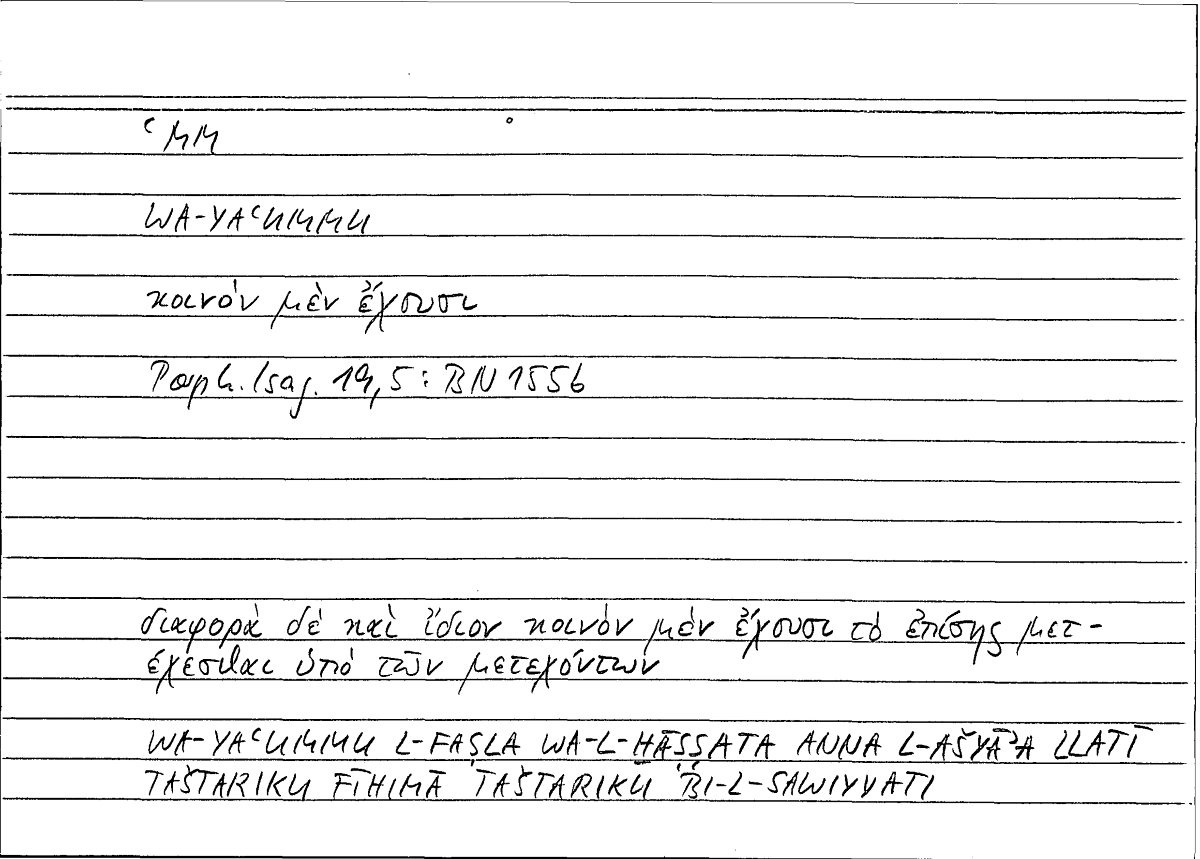 ʿMM
WA-YAʿUMMU
κοινὸν μὲν ἔχουσι
Porph. Isag. 19,5 : BN 155b
διαφορὰ δὲ καὶ ἴδιον κοινὸν μὲν ἔχουσι τὸ ἐπίσης μετ-
έχεσθαι ὑπὸ τῶν μετεχόντων
WA-YAʿUMMU L-FAṢLA WA-L-ḪĀṢṢATA ANNA L-AŠYĀʾA LLATĪ
TAŠTARIKU FĪHIMĀ TAŠTARIKU BI-L-SAWIYYATI